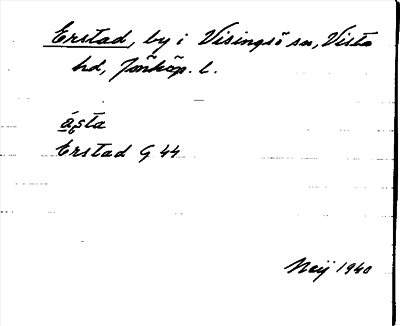 Erstad, by i Visingsö sn, Vista
hd, Jönköp. l.
ásta
Erstad G 44
Neij 1940